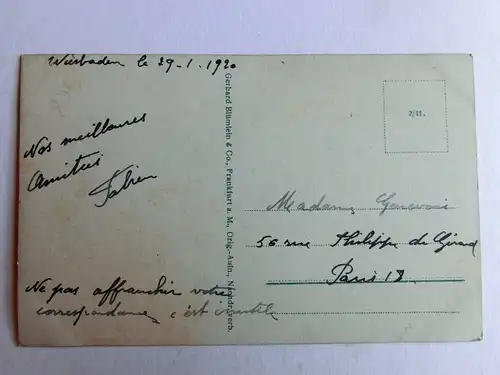 Wiesbaden le 29-1-1920
Nos meilleures
Amitiés
Fabien
Ne pas affranchir votre
correspondance, c'est inutile
Gerhard Blümlein & Co., Frankfurt a. M., Orig.-Aufn., Nachdr. verb.
2/11.
Madame Genevois
56 rue Philippe de Girard
Paris 18